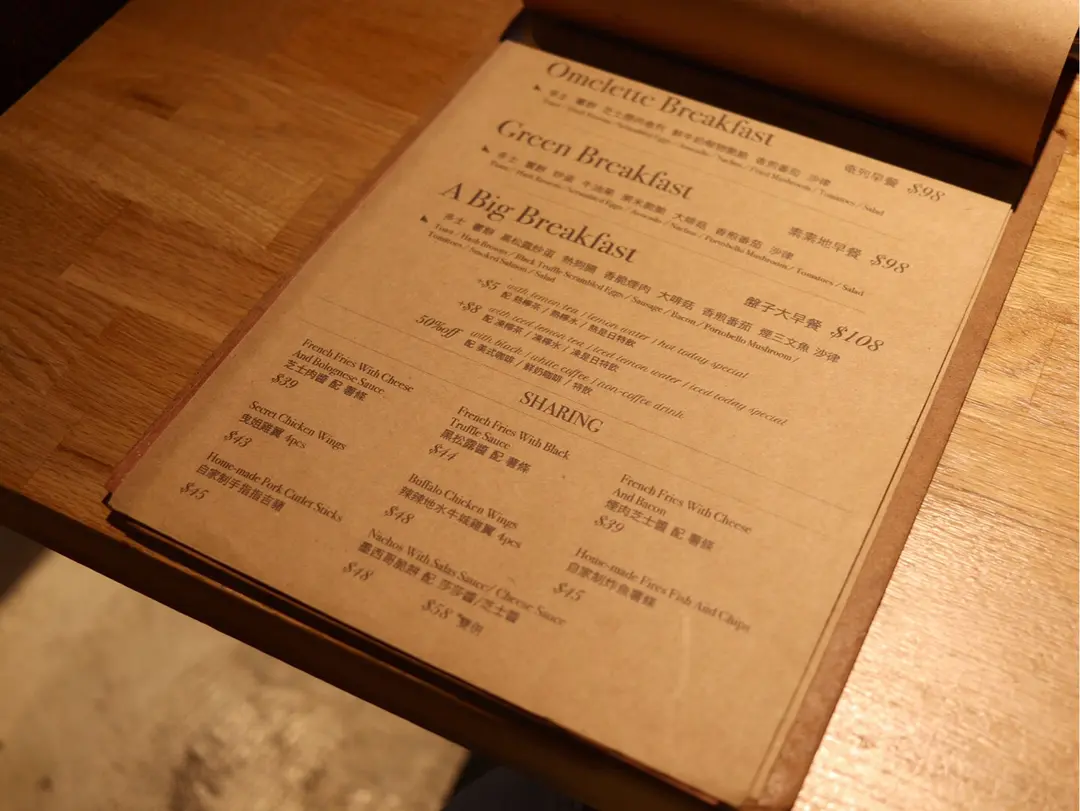 Omelette Breakfast
奄列早餐 $98
Toast / Hash Browns / Scrambled Eggs / Avocado / Nachos / Fried Mushrooms / Tomatoes / Salad
Green Breakfast
素素地早餐 $98
多士 薯餅 炒蛋 牛油果 粟米脆脆 大啡菇 香煎番茄 沙律
Toast / Hash Browns / Scrambled Eggs / Avocado / Nachos / Portobello Mushroom / Tomatoes / Salad
A Big Breakfast
盤子大早餐 $108
多士 薯餅 黑松露炒蛋 熱狗腸 香脆煙肉 大啡菇 香煎番茄 煙三文魚 沙律
Toast / Hash Browns / Black Truffle Scrambled Eggs / Sausage / Bacon / Portobello Mushroom /
Tomatoes / Smoked Salmon / Salad
+$5 with lemon tea / lemon water / hot today special
配 熱檸茶 / 熱檸水 / 熱是日特飲
+$8 with iced lemon tea / iced lemon water / iced today special
配 凍檸茶 / 凍檸水 / 凍是日特飲
50%off with black / white coffee / non-coffee drink
配 美式咖啡 / 鮮奶咖啡 / 特飲
SHARING
French Fries With Cheese
And Bolognese Sauce
芝士肉醬 配 薯條
$39
French Fries With Black
Truffle Sauce
黑松露醬 配 薯條
$44
French Fries With Cheese
And Bacon
煙肉芝士醬 配 薯條
$39
Secret Chicken Wings
曳姐雞翼 4pcs
$43
Buffalo Chicken Wings
辣辣地水牛城雞翼 4pcs
$48
Home-made Fires Fish And Chips
自家制炸魚薯條
$45
Home-made Pork Cutlet Sticks
自家制手指指吉豬
$45
Nachos With Salas Sauce/ Cheese Sauce
墨西哥脆餅 配 莎莎醬/芝士醬
$48
$58 雙併